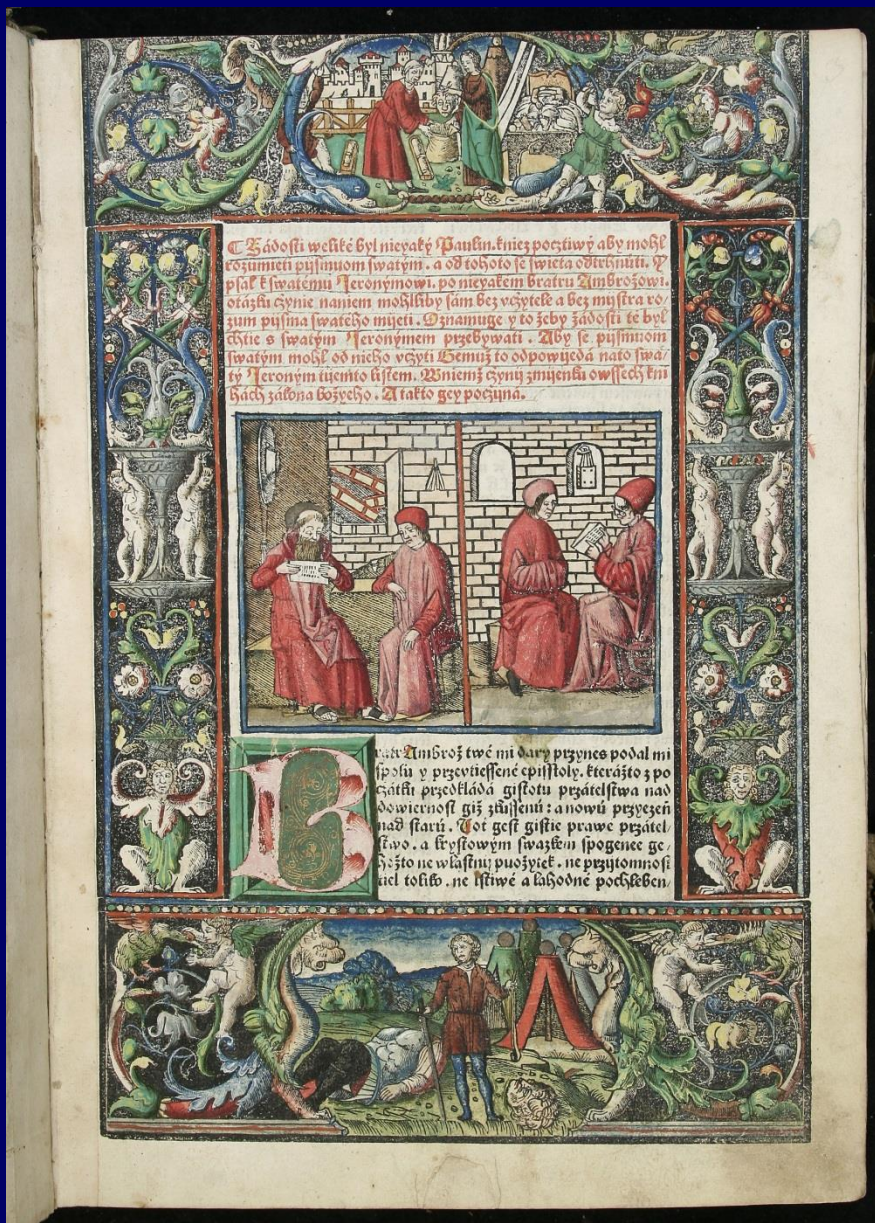 Žádosti weliké byl nieyaký Paulin. kniez pocztiwý aby mohl
rozumieti pijsmuom swatým. a od tohoto se swieta odtrhnúti. Y
psal k swatému Jeronýmowi. po nieyakém bratru Ambrožowi.
otázku czynie naniem mohlliby sám bez vczytele a bez mijstra ro-
zum pijsma swatého mijeti. Oznamuge y to žeby žádosti té byl
chtie s swatým Jeronýmem przebywati. Aby se pijsmuom
swatým mohl od nieho vczyti Gemuž to odpowijedá nato swa-
tý Jeroným tijemto listem. Wniemž czynij zmijenku owssech kni
hách zákona božyeho. A takto gey poczijná.
Bratr Ambrož twé mi dary przynes podal mi
spolu y przevtiessené episstoly. kterážto z po
czátku przedkládá gistotu przátelstwa nad
dowiernost giž zkussenú : a nowú przyezeň
nad starú. Toť gest gistie prawé przátel-
stwo. a krystowým swazkem spogenee ge-
hožto ne wlastnij puožyiek. ne przijtomnost
tiel toliko. ne lstiwé a lahodné pochleben-